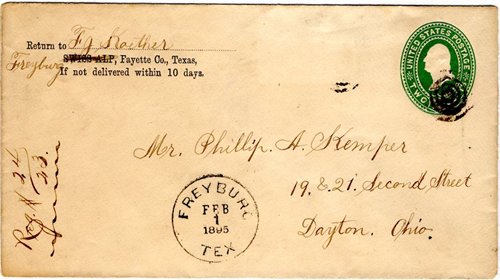 Return to Fg Koether
Freyburg SWISS ALP, Fayette Co., Texas,
If not delivered within 10 days.
UNITED STATES POSTAGE
TWO
Mr. Phillip. A. Kemper
19. & 21. Second Street
Dayton. Ohio.
FREYBURG
FEB
1
1895
TEX
Reg. # 24
23